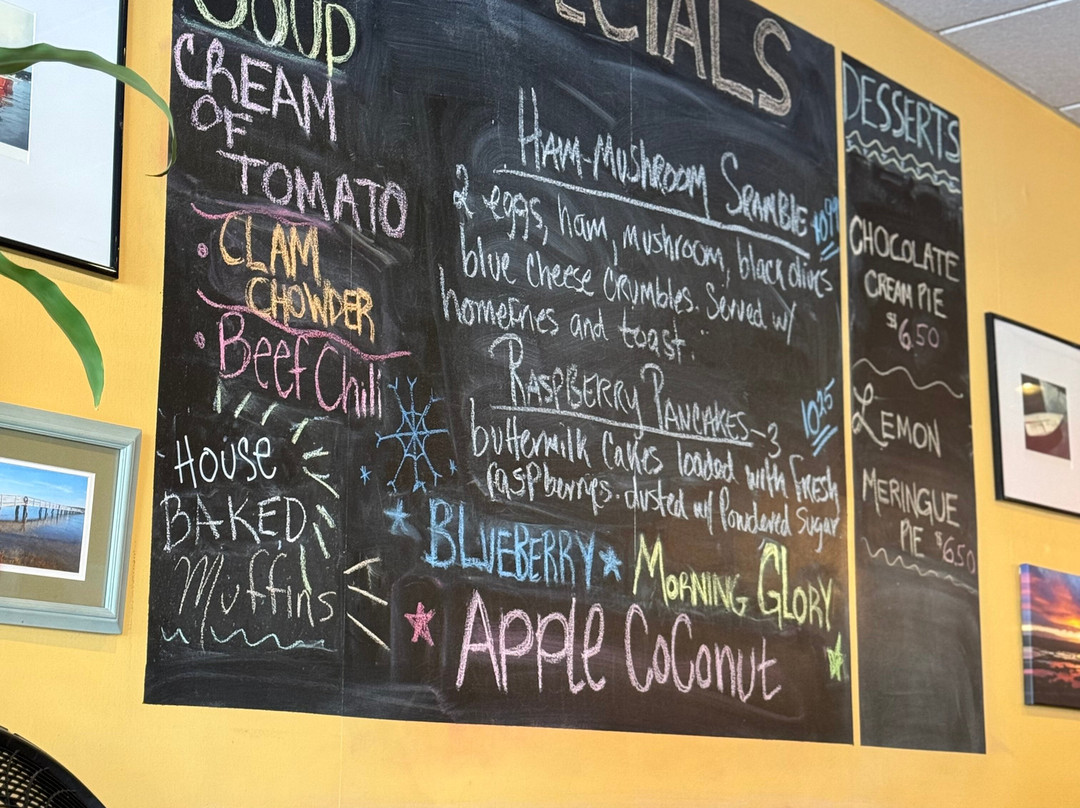 SOUP
CREAM
OF
TOMATO
CLAM
CHOWDER
Beef Chili
House
BAKED
Muffins
CIALS
HAM-MUSHROOM SRAMBLE 10.99
2 eggs, ham, mushroom, black olives
blue cheese crumbles. Served w/
homefries and toast.
RASPBERRY PANCAKES-3 10.25
buttermilk cakes loaded with Fresh
raspberrys. dusted w/ Powdered Sugar
BLUEBERRY MORNING GLORY
APPLE COCONUT
DESSERTS
CHOCOLATE
CREAM PIE
$6.50
LEMON
MERINGUE
PIE $6.50